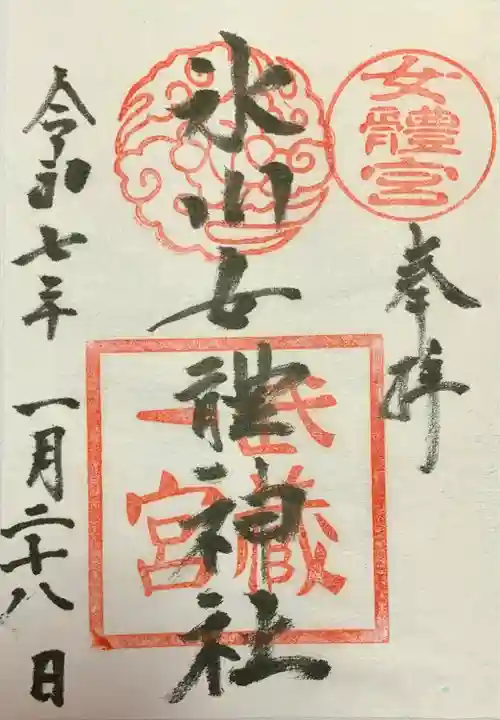 女體宮
奉拝
氷川女體神社
武蔵
一宮
令和七年
一月二十八日